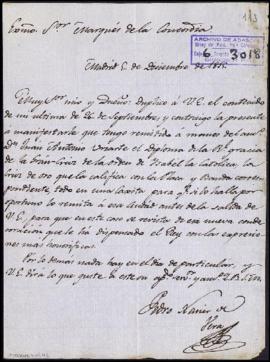 113
Exmo. Sor. Marqués de la Concordia
ARCHIVO DE ABAS
6 3018
Madrid 8 de Diciembre de 1815
Muy Sor. mio y Dueño: duplico á V.E. el contenido
de mi ultima de 26 de Septiembre, y contraygo la presente
á manifestarle que tengo remitido á manos del
Dn. Juan Antonio Uriarte el diploma de la Rl. gracia
de la Gran-Cruz de la orden de Isabel la Catolica, la
Cruz de oro que la califica con la Placa y Banda corres-
pondiente, todo en una caxita para qe. si lo halla por
oportuno lo remita á esa Ciudad antes de la salida de
V.E., para que en este caso se revista de esa nueva conde-
coración que le ha dispensado el Rey con las expresio-
nes mas honorificas.
Por lo demas nada hay en el dia de particular, y
V.E. dirá lo que guste á este su
Pedro Xavier de
Vera